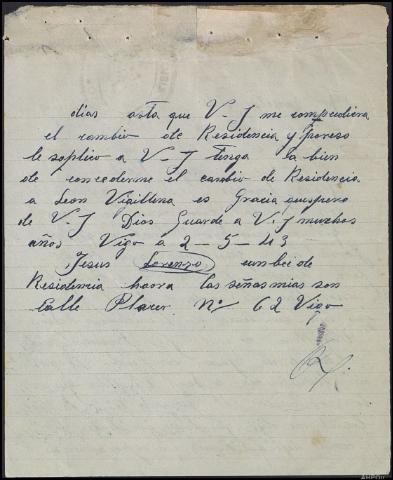 días asta que V-J me comprediera
el cambio de Residencia y Poreso
le soplico a V-J tenga la bien
de concederme el cambio de Residencia
a Leon Vigillena es Gracia quespero
de V-J Dios Guarde a V.J muchos
años Vigo a 2-5-43
Jesus Lorenzo cambei de
Residencia haora las señas mias son
Calle Placer Nº 62 Vigo
AHPOU